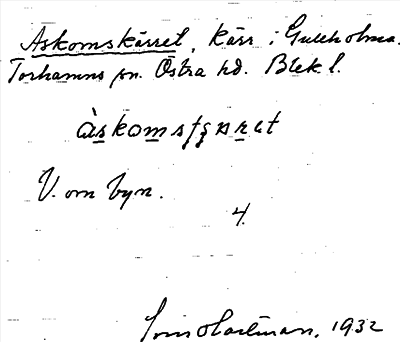 Askomskärret, Kärr i Gullholma.
Torhamns sn. Östra hd. Blek l.
àskomsʃærət
V. om byn.
4.
Hartman, 1932